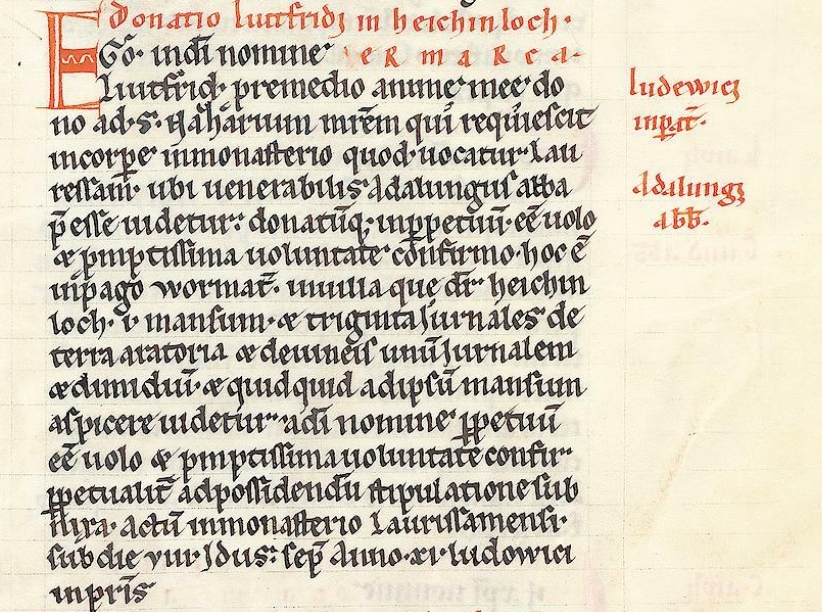 Donatio Luitfridi in heichinloch·
EGo· in di nomine
et marca·
Luitfrid· p remedio anime mee do
no ad·s· Nazarium mrēm qui requiescit
in corpe in monasterio quod uocatur·Lau
ressam· ubi uenerabilis Adalungus abba
p̄esse uidetur· donatūq; inppetuū·eē uolo
& pmptissima uoluntate cōfirmo·hoc ē
in pago wormat̄· in uilla que dr̄ heichin
loch· i· mansum· & triginta Jurnales de
terra aratoria & de uineis unū Jurnalem
& dimidiū·& quidquid ad ipsū mansum
aspicere uidetur· a dī nomine ppetuū
eē uolo & pmptissima uoluntate confir·
ppetualit̄ ad possidendū stipulatione sub
nixa· actū in monasterio Laurissamensi·
sub die viii· Jdus· sep̄ Anno·xi·ludowici
inpr̄is·
ludewici
inpat̄·
Adalungꝰ
abb̄·